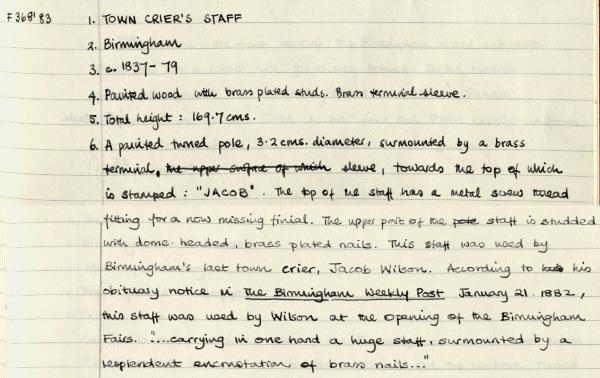 F368'83 1. TOWN CRIER'S STAFF
2. Birmingham
3. c. 1837-79
4. Painted wood with brass plated studs. Brass terminal sleeve.
5. Total height : 169.7cms.
6. A painted turned pole, 3.2 cms. diameter, surmounted by a brass
terminal, the upper surface of which sleeve, towards the top of which
is stamped : "JACOB". The top of the staff has a metal screw thread
fitting for a now missing finial. The upper part of the pole staff is studded
with dome-headed, brass plated nails. This staff was used by
Birmingham's last town crier, Jacob Wilson. According to his
obituary notice in The Birmingham Weekly Post January 21. 1882,
this staff was used by Wilson at the opening of the Birmingham
Fairs. "...carrying in one hand a huge staff, surmounted by a
resplendent encrustation of brass nails..."